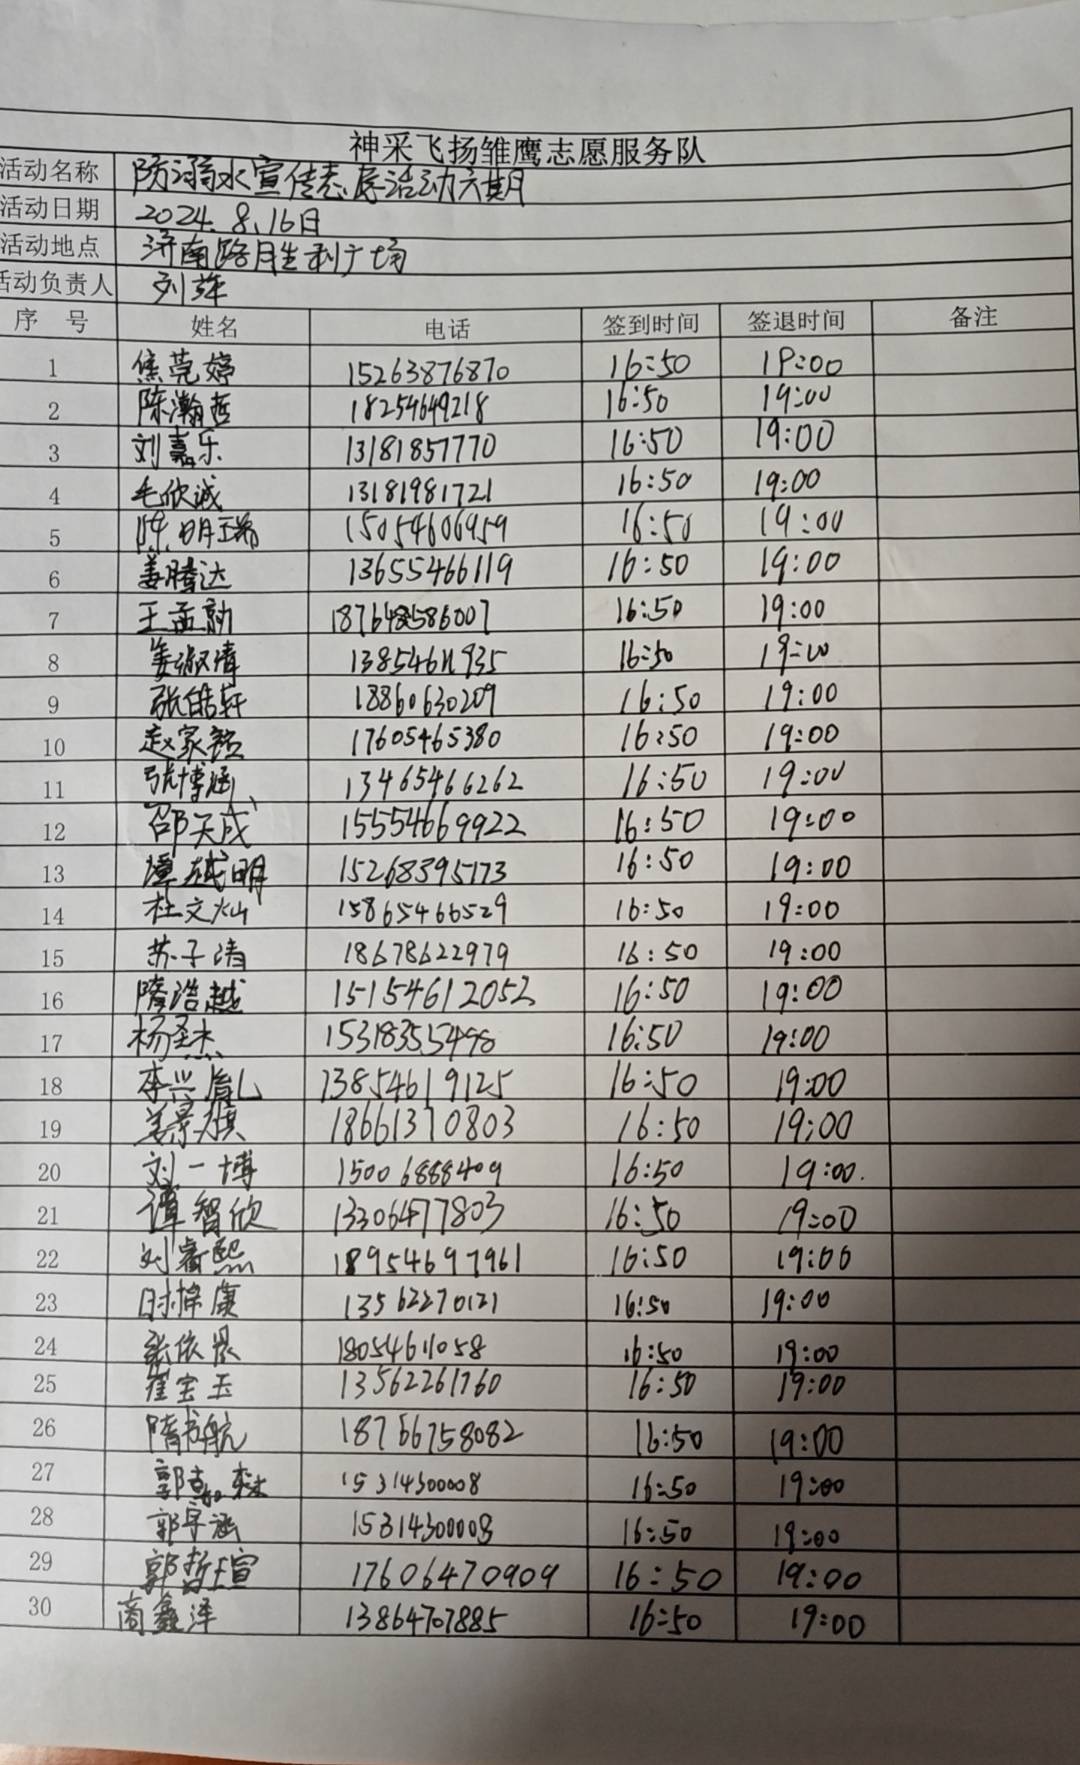 神采飞扬雏鹰志愿服务队
活动名称 防溺水宣传志愿活动六期
活动日期 2024.8.16日
活动地点 济南路胜利广场
活动负责人 刘萍
序 号 姓名 电话 签到时间 签退时间 备注
1 焦莞婷 15263876870 16:50 19:00
2 陈瀚哲 18254649218 16:50 19:00
3 刘嘉乐 13181857770 16:50 19:00
4 毛欣诚 13181981721 16:50 19:00
5 陈明瑞 15054606959 16:50 19:00
6 姜腾达 13655466119 16:50 19:00
7 王孟勋 16:50 19:00
8 姜淑清 13854611935 16:50 19:00
9 张皓轩 18860630209 16:50 19:00
10 赵家铭 17605465380 16:50 19:00
11 张博涵 13465466262 16:50 19:00
12 邵天成 15554669922 16:50 19:00
13 越明 15268395173 16:50 19:00
14 杜文灿 15865466529 16:50 19:00
15 苏子清 18678622979 16:50 19:00
16 隋浩越 15154612052 16:50 19:00
17 杨圣杰 15318355498 16:50 19:00
18 李兴 13854619125 16:50 19:00
19 姜景祺 18661370803 16:50 19:00
20 刘一博 15006868409 16:50 19:00.
21 谭智欣 13306477803 16:50 19:00
22 刘睿熙 18954697961 16:50 19:00
23 时 康 13562270121 16:50 19:00
24 张依 18054611058 16:50 19:00
25 崔宝玉 13562261760 16:50 19:00
26 隋书航 18766758082 16:50 19:00
27 郭嘉 15314300008 16:50 19:00
28 郭宇涵 15314300008 16:50 19:00
29 郭哲瑄 17606470909 16:50 19:00
30 商鑫泽 13864707885 16:50 19:00